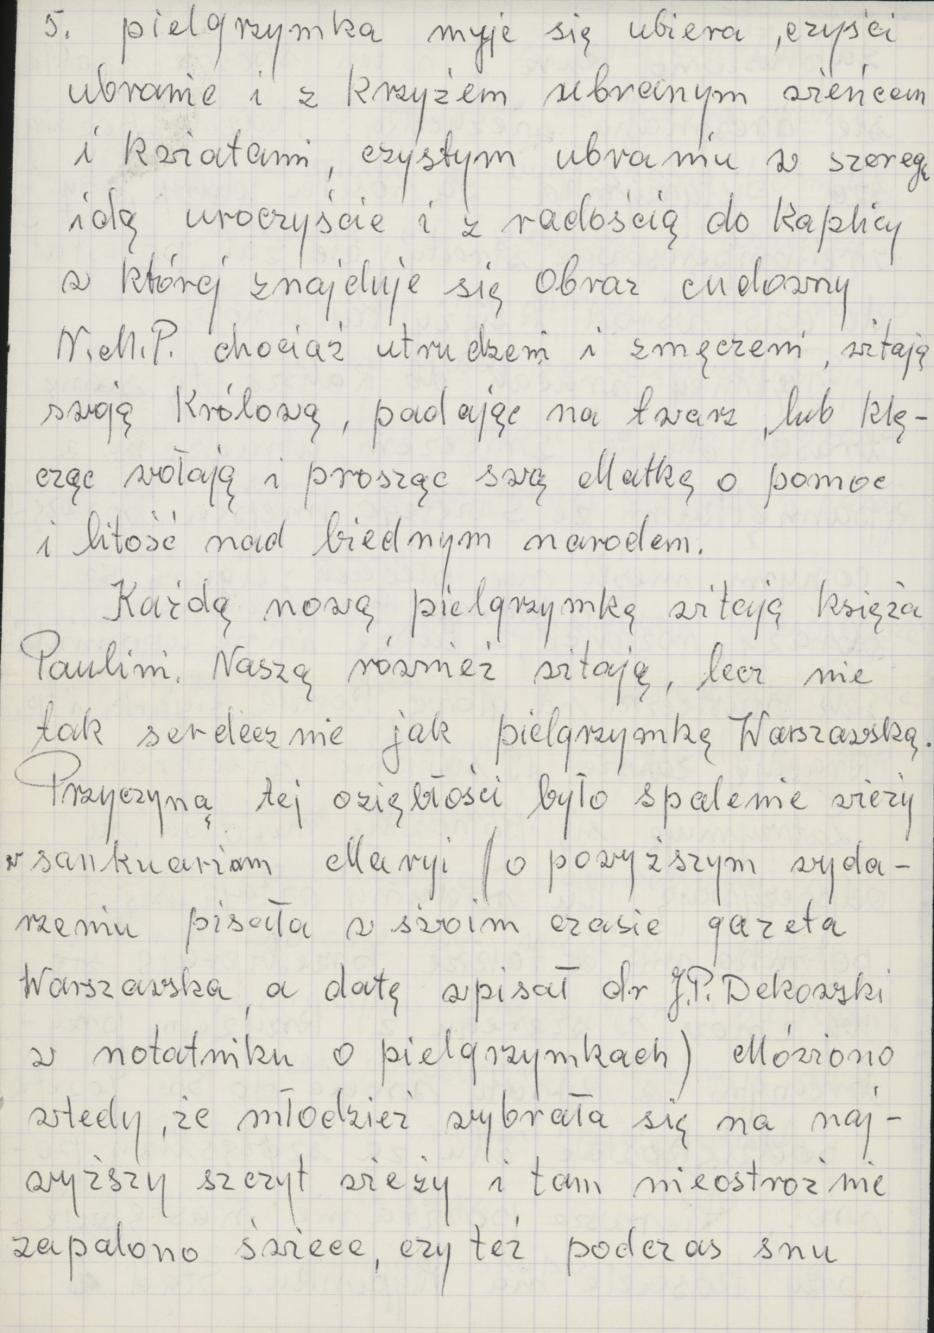 5. pielgrzymka myje się ubiera, czyści
ubranie i z krzyżem ubranym wieńcem
i kwiatami, czystym ubraniu w szeregu
idą uroczyście i z radością do kaplicy
w której znajduje się obraz cudowny
N.M.P. chociaż utrudzeni i zmęczeni, witają
swoją Królową, padając na twarz, lub klę-
cząc wołają i prosząc swą Matkę o pomoc
i litość nad biednym narodem.
Każdą nową pielgrzymkę witają księża
Paulini. Naszą również witają, lecz nie
tak serdecznie jak pielgrzymkę Warszawską.
Przyczyną tej oziębłości było spalenie wieży
w sankuariom Maryi (o powyższym wyda-
rzeniu pisała w swoim czasie gazeta
Warszawska, a datę wpisał dr J.P. Dekowski
w notatniku o pielgrzymkach) Mówiono
wtedy, że młodzież wybrała się na naj-
wyższy szczyt wieży i tam nieostrożnie
zapalono świece, czy też podczas snu